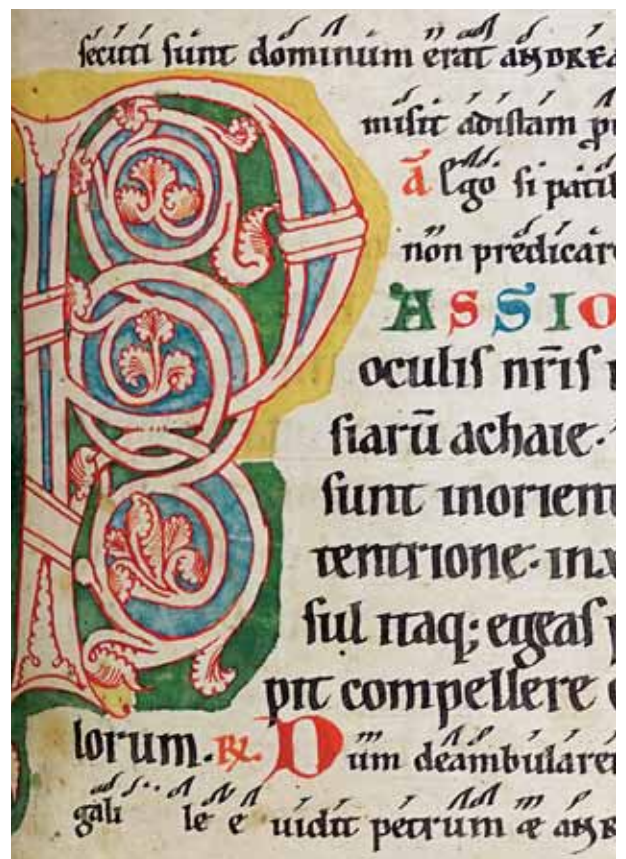 secuti sunt dominum erat ANDREA
misit ad istam p
algo si patib
non predicare
PASSIO
oculis nr̄is
siarū achaie·
sunt in orient
tentrione· in
sul itaq; egeas
pit compellere
lorum. R. Dum deambularet
gali le e uidit petrum æ AN